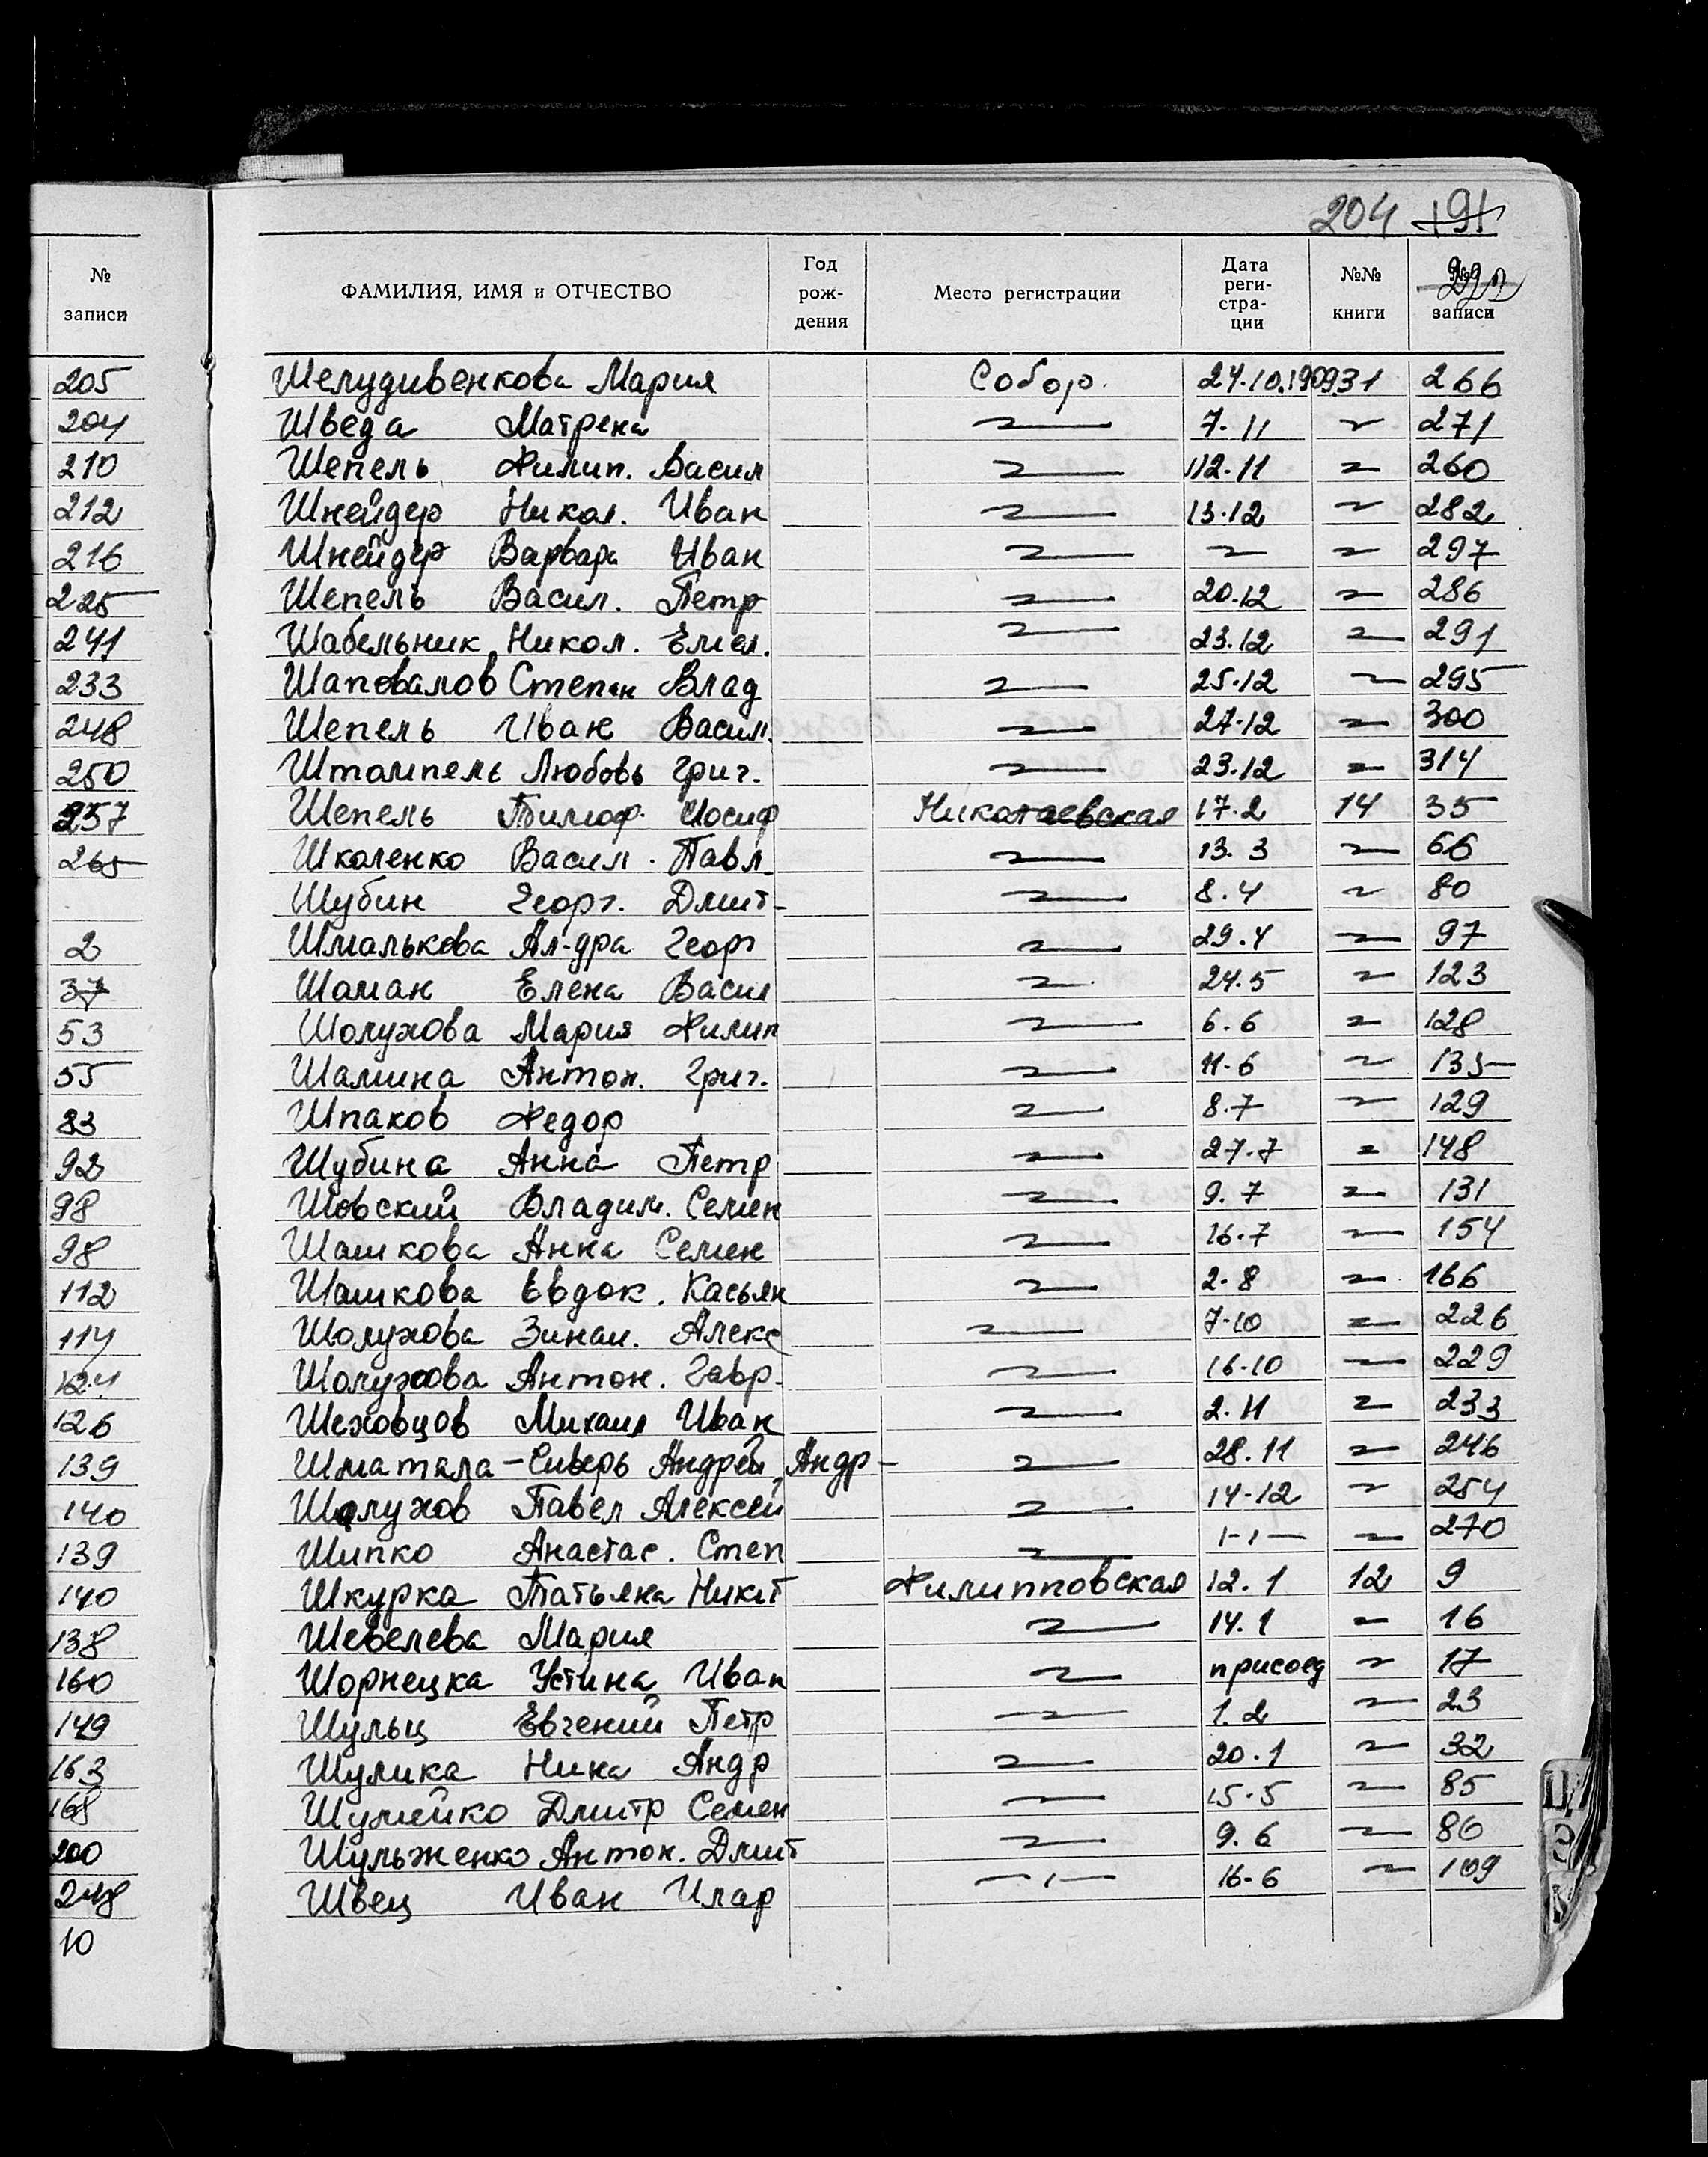 204 191
№
записи
ФАМИЛИЯ, ИМЯ и ОТЧЕСТВО Год рож- дения Место регистрации Дата реги- стра- ции №№ книги №№ записи
205
204
210
212
216
225
241
233
248
250
257
265
2
37
53
55
83
92
98
98
112
114
124
126
139
140
139
140
138
160
149
163
168
200
248
10
Шелудивенкова Мария Собор. 24.10.1909 31 266
Шведа Матрена 7.11 271
Шепель Филип. Васил 12.11 260
Шнейдер Никол. Иван 13.12 282
Шнейдер Варвара Иван 297
Шепель Васил. Петр 20.12 286
Шабельник Никол. Емел. 23.12 291
Шаповалов Степан Влад 25.12 295
Шепель Иван Васил. 27.12 300
Штомпель Любовь Григ. 23.12 314
Шепель Тимоф. Иосиф Николаевская 17.2 14 35
Школенко Васил. Павл. 13.3 66
Шубин Георг. Дмит- 8.4 80
Шмалькова Ал-дра Георг 29.4 97
Шаман Елена Васил 24.5 123
Шолухова Мария Филип 6.6 128
Шамина Антон. Григ. 11.6 135
Шпаков Федор 8.7 129
Шубина Анна Петр 27.7 148
Шовский Владим. Семен 9.7 131
Шашкова Анна Семен 16.7 154
Шашкова Евдок. Касьян 2.8 166
Шолухова Зинаи. Алекс 7.10 226
Шолухова Антон. Гавр. 16.10 229
Шеховцов Михаил Иван 2.11 233
Шматала-Сиверь Андрей Андр- 28.11 246
Шолухов Павел Алексей 14.12 254
Шипко Анастас. Степ -ı-ı- 270
Шкурка Татьяна Никит Филипповская 12.1 12 9
Шевелева Мария 14.1 16
Шорнецка Устина Иван присоед 17
Шульц Евгений Петр 1.2 23
Шулика Нина Андр 20.1 32
Шумейко Дмитр Семен 15.5 85
Шульженко Антон. Дмит 9.6 86
Швец Иван Илар -ı- 16.6 109